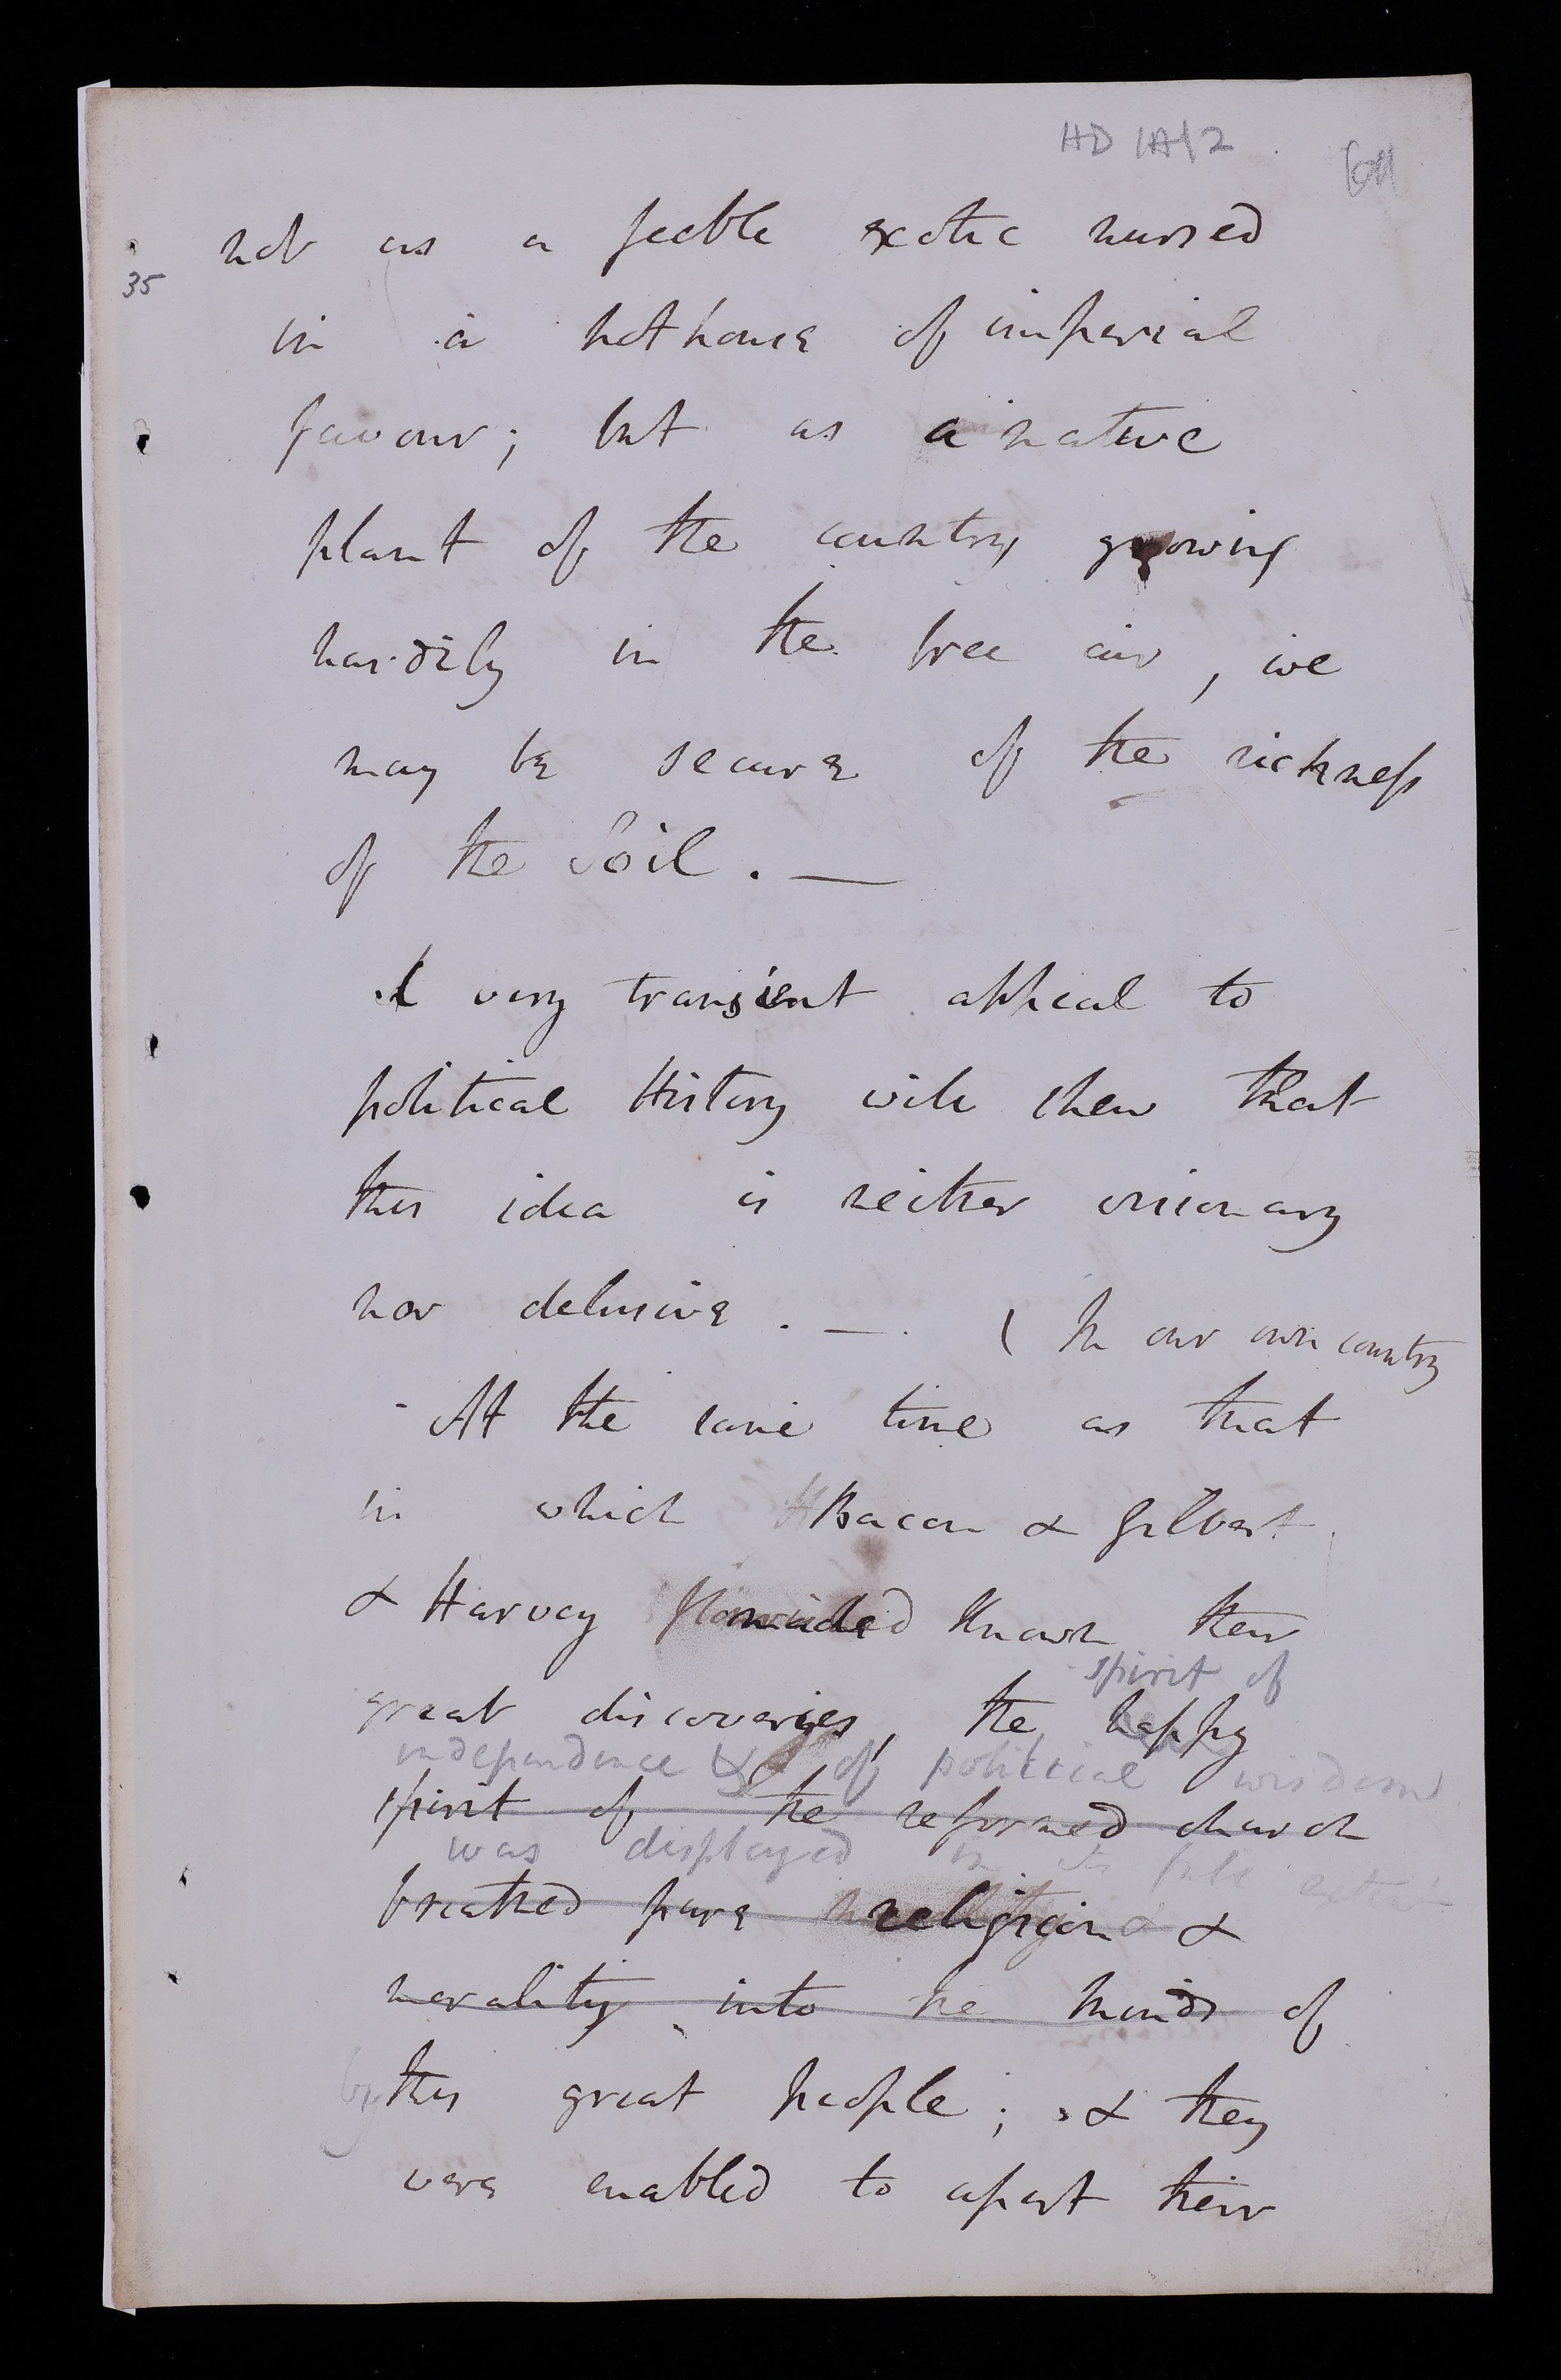 HD 1A/2
35
not as a feeble exotic nursed
in a hothouse of imperial
favour; but as a native
plant of the country growing
hardily in the free air, we
may be secure of the richness
of the Soil. —
A very transient appeal to
political History will shew that
this idea is neither visionary
nor delusive. —
( In our own country
- At the same time as that
in which Bacon & Gilbert
& Harvey made known their
spirit of
great discoveries, the happy
independence & of political wisdom
spirit of the reformed church
was displayed in its full extent
breathed pure religion &
morality into the minds of
by this great people; & they
were enabled to assert their